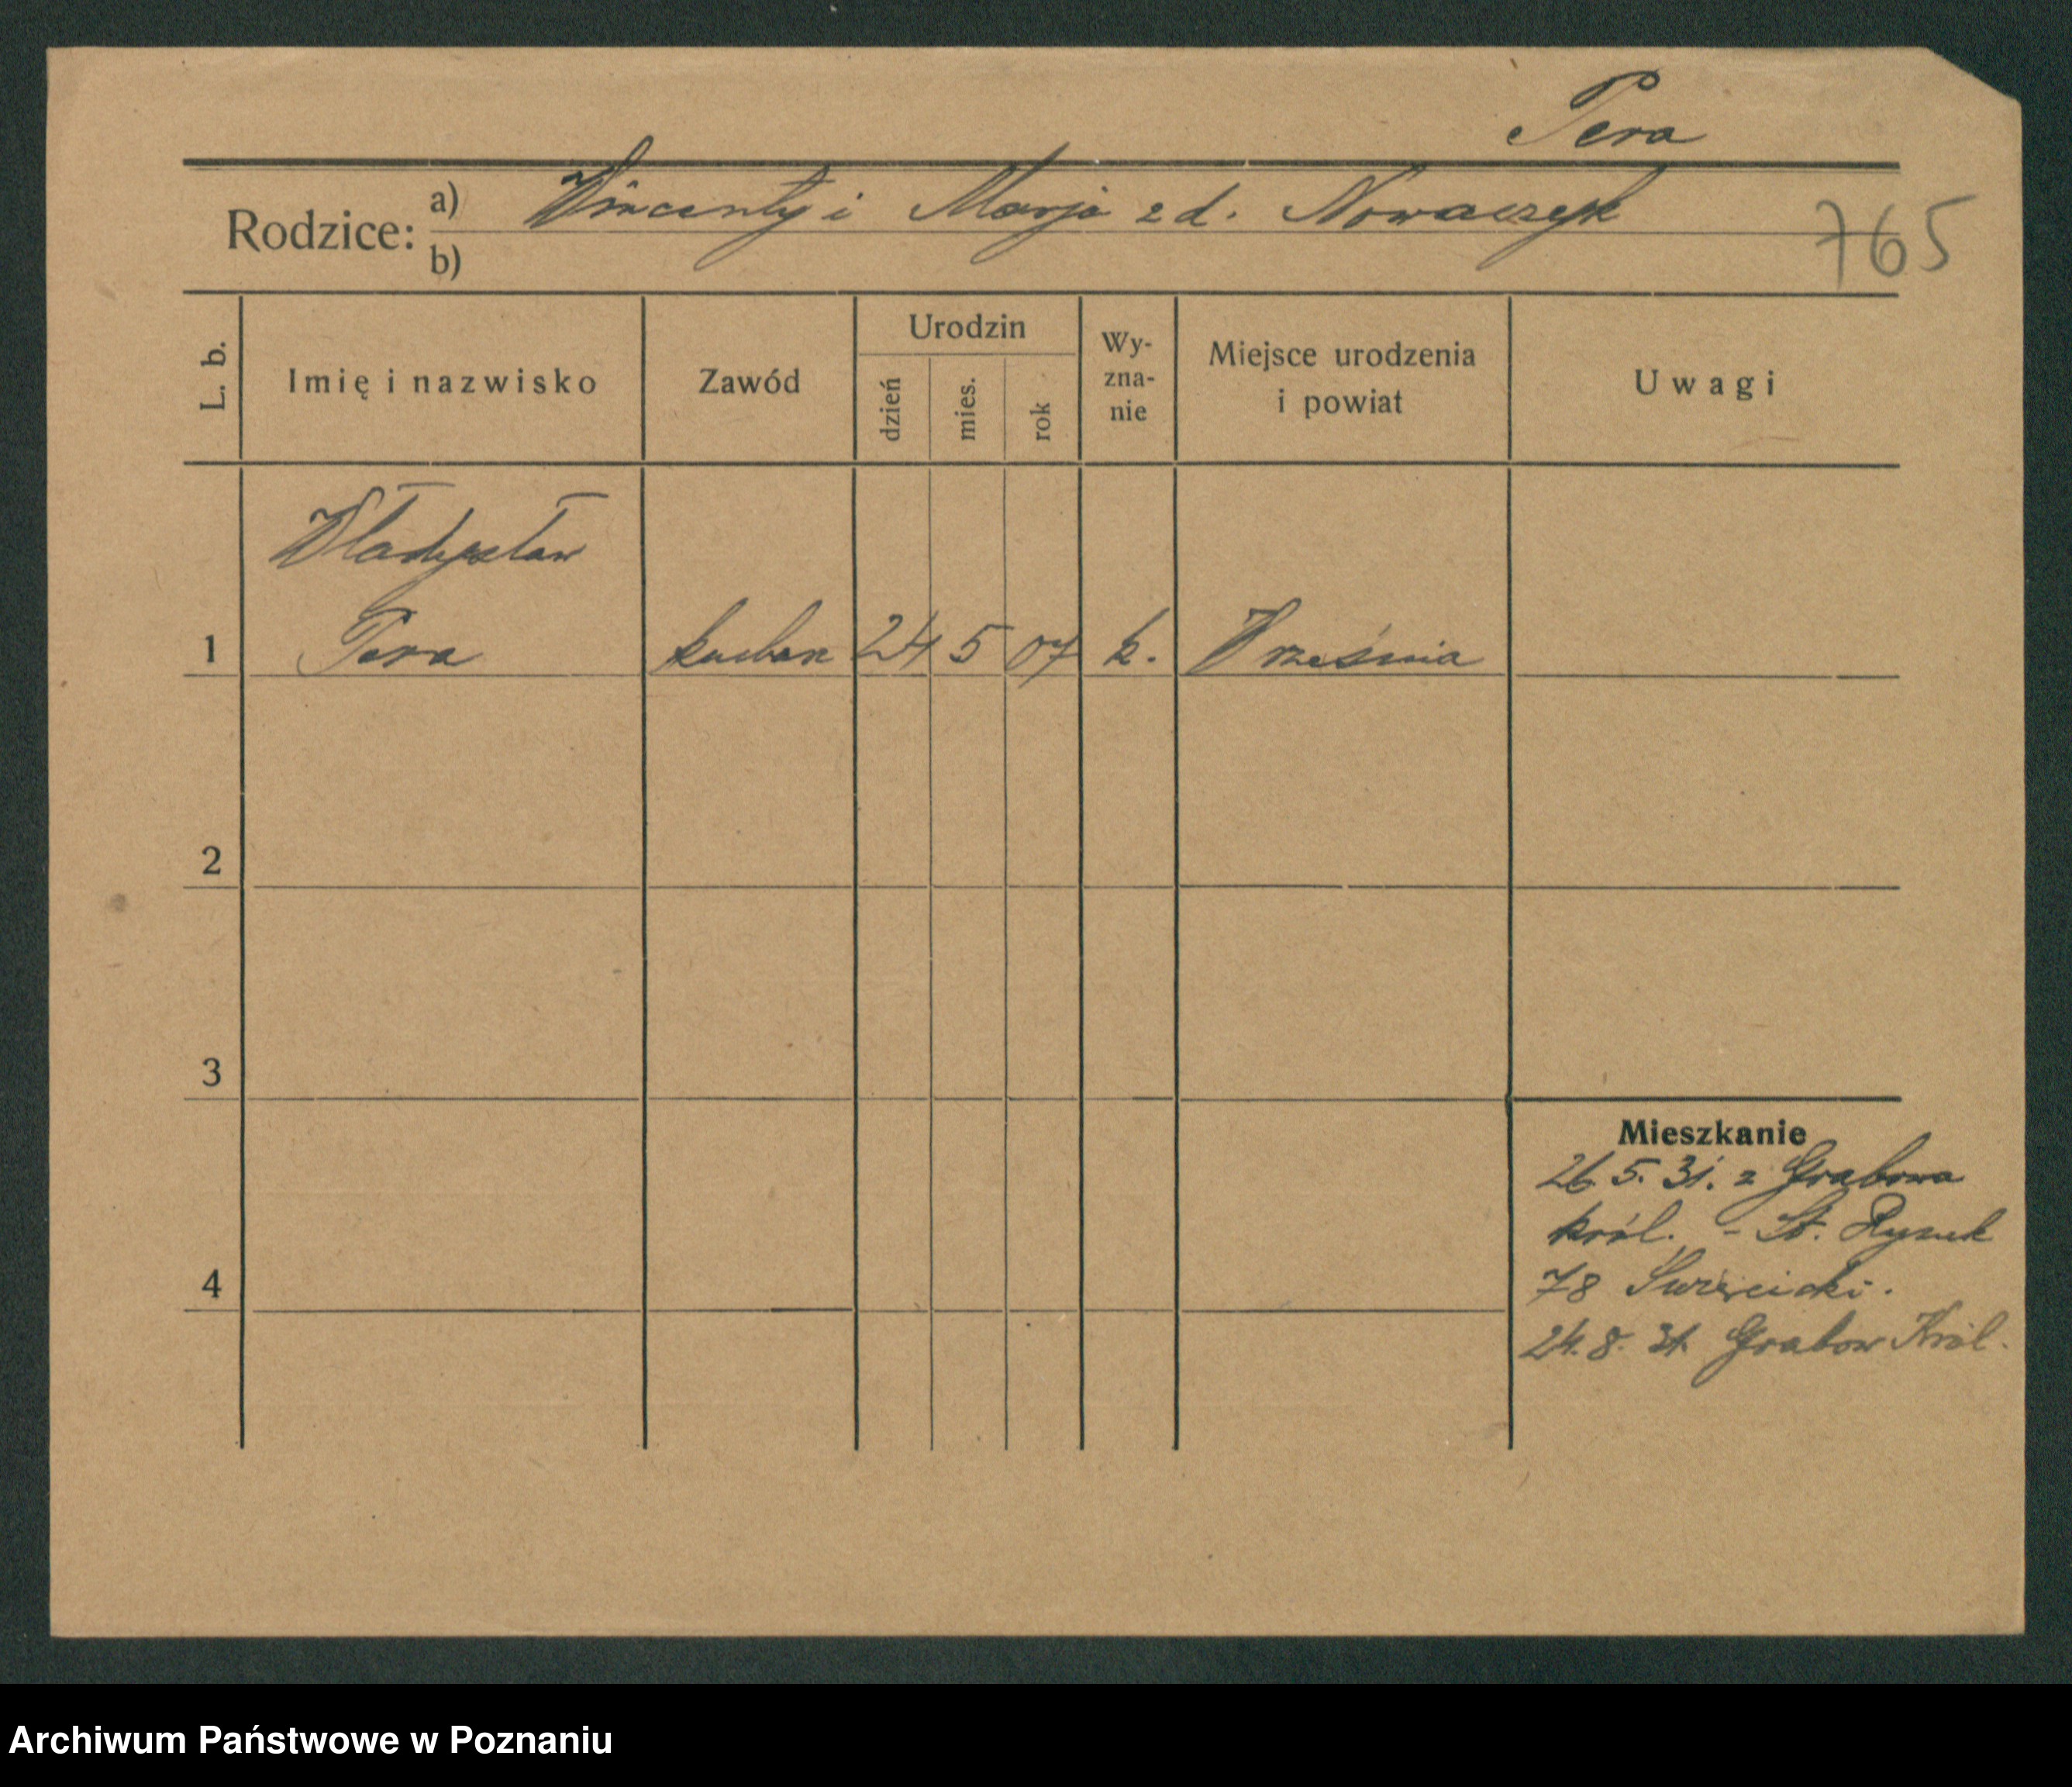 Pera
Rodzice: a) Wincenty i Marja z d. Nowaczyk
b)
765
L. b. Imię i nazwisko Zawód Urodzin dzień mies. rok Wy-zna-nie Miejsce urodzenia i powiat Uwagi
Władysław
1 Pera kucharz 24 5 07 k. Września
2
3
Mieszkanie
26. 5. 31. z Grabowa
król. - St. Rynek
4 78 Święcicki.
24. 8. 31. Grabow Król.
Archiwum Państwowe w Poznaniu